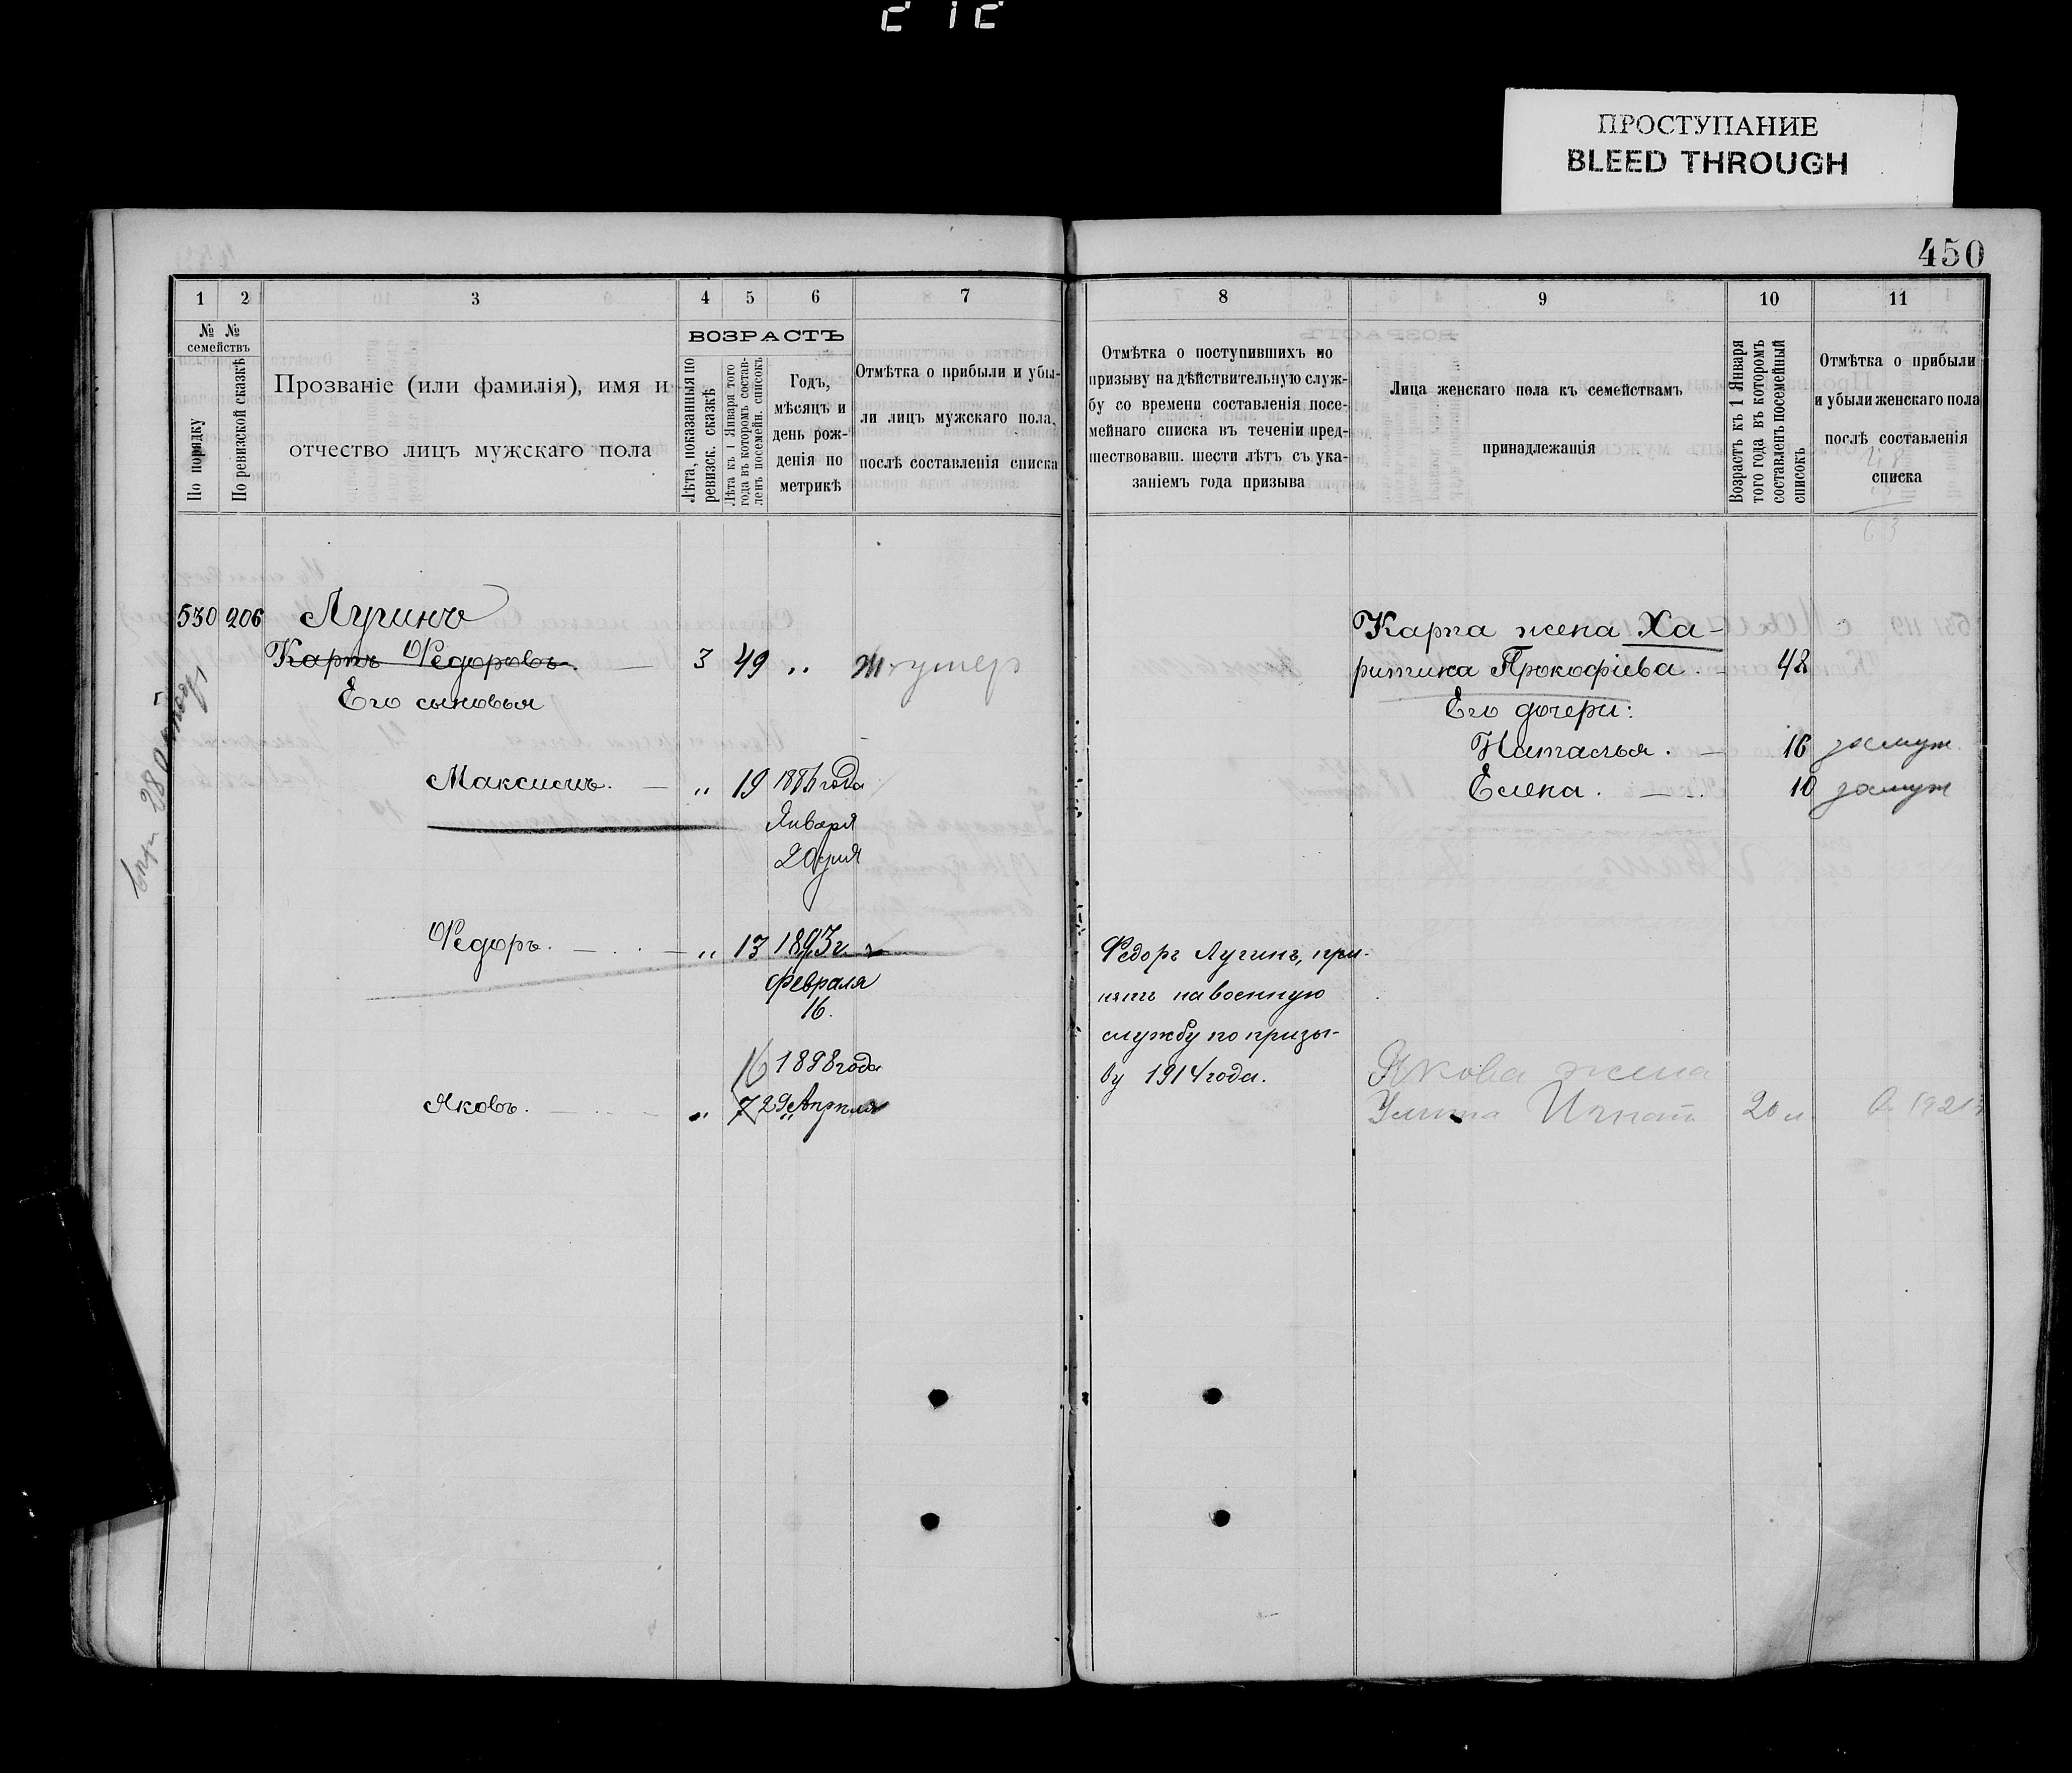 ПРОСТУПАНИЕ
BLEED THROUGH
450
1 2 3 4 5 6 7
№ № семействъ
По порядку
По ревизской сказкѣ
Прозваніе (или фамилія), имя и
отчество лицъ мужскаго пола
ВОЗРАСТЪ
Лѣта, показанныя по
ревизск. сказкѣ
Лѣта къ 1 Января того
года въ которомъ состав-
ленъ посемейн. списокъ
Годъ,
мѣсяцъ и
день рож-
денія по
метрикѣ
Отмѣтка о прибыли и убы-
ли лицъ мужскаго пола,
послѣ составленія списка
530 206 Лугинъ
Карпъ Федоровъ. 3 49 „ умер
Его сыновья
Максимъ. „ 19 1886 года
Января
20 дня
Федоръ. „ 13 1893 г.
Февраля
16.
16 1898 года
Яковъ. „ 7 29 Апреля
8 9 10 11
Отмѣтка о поступившихъ по
призыву на дѣйствительную служ-
бу со времени составленія посе-
мейнаго списка въ теченіи пред-
шествовавш. шести лѣтъ съ ука-
заніемъ года призыва
Лица женскаго пола къ семействамъ
принадлежащія
Возрастъ къ 1 Января
того года въ которомъ
составленъ посемейный
списокъ
Отмѣтка о прибыли
и убыли женскаго пола
послѣ составленія
списка
63
Карпа жена Ха-
ритина Прокофіева. 48
Его дочери:
Наталья. 16 замуж
Елена. 10 замуж
Федоръ Лугинъ, при-
нятъ на военную
службу по призы-
ву 1914 года.
Якова жена
Улита Игнат 20 л.